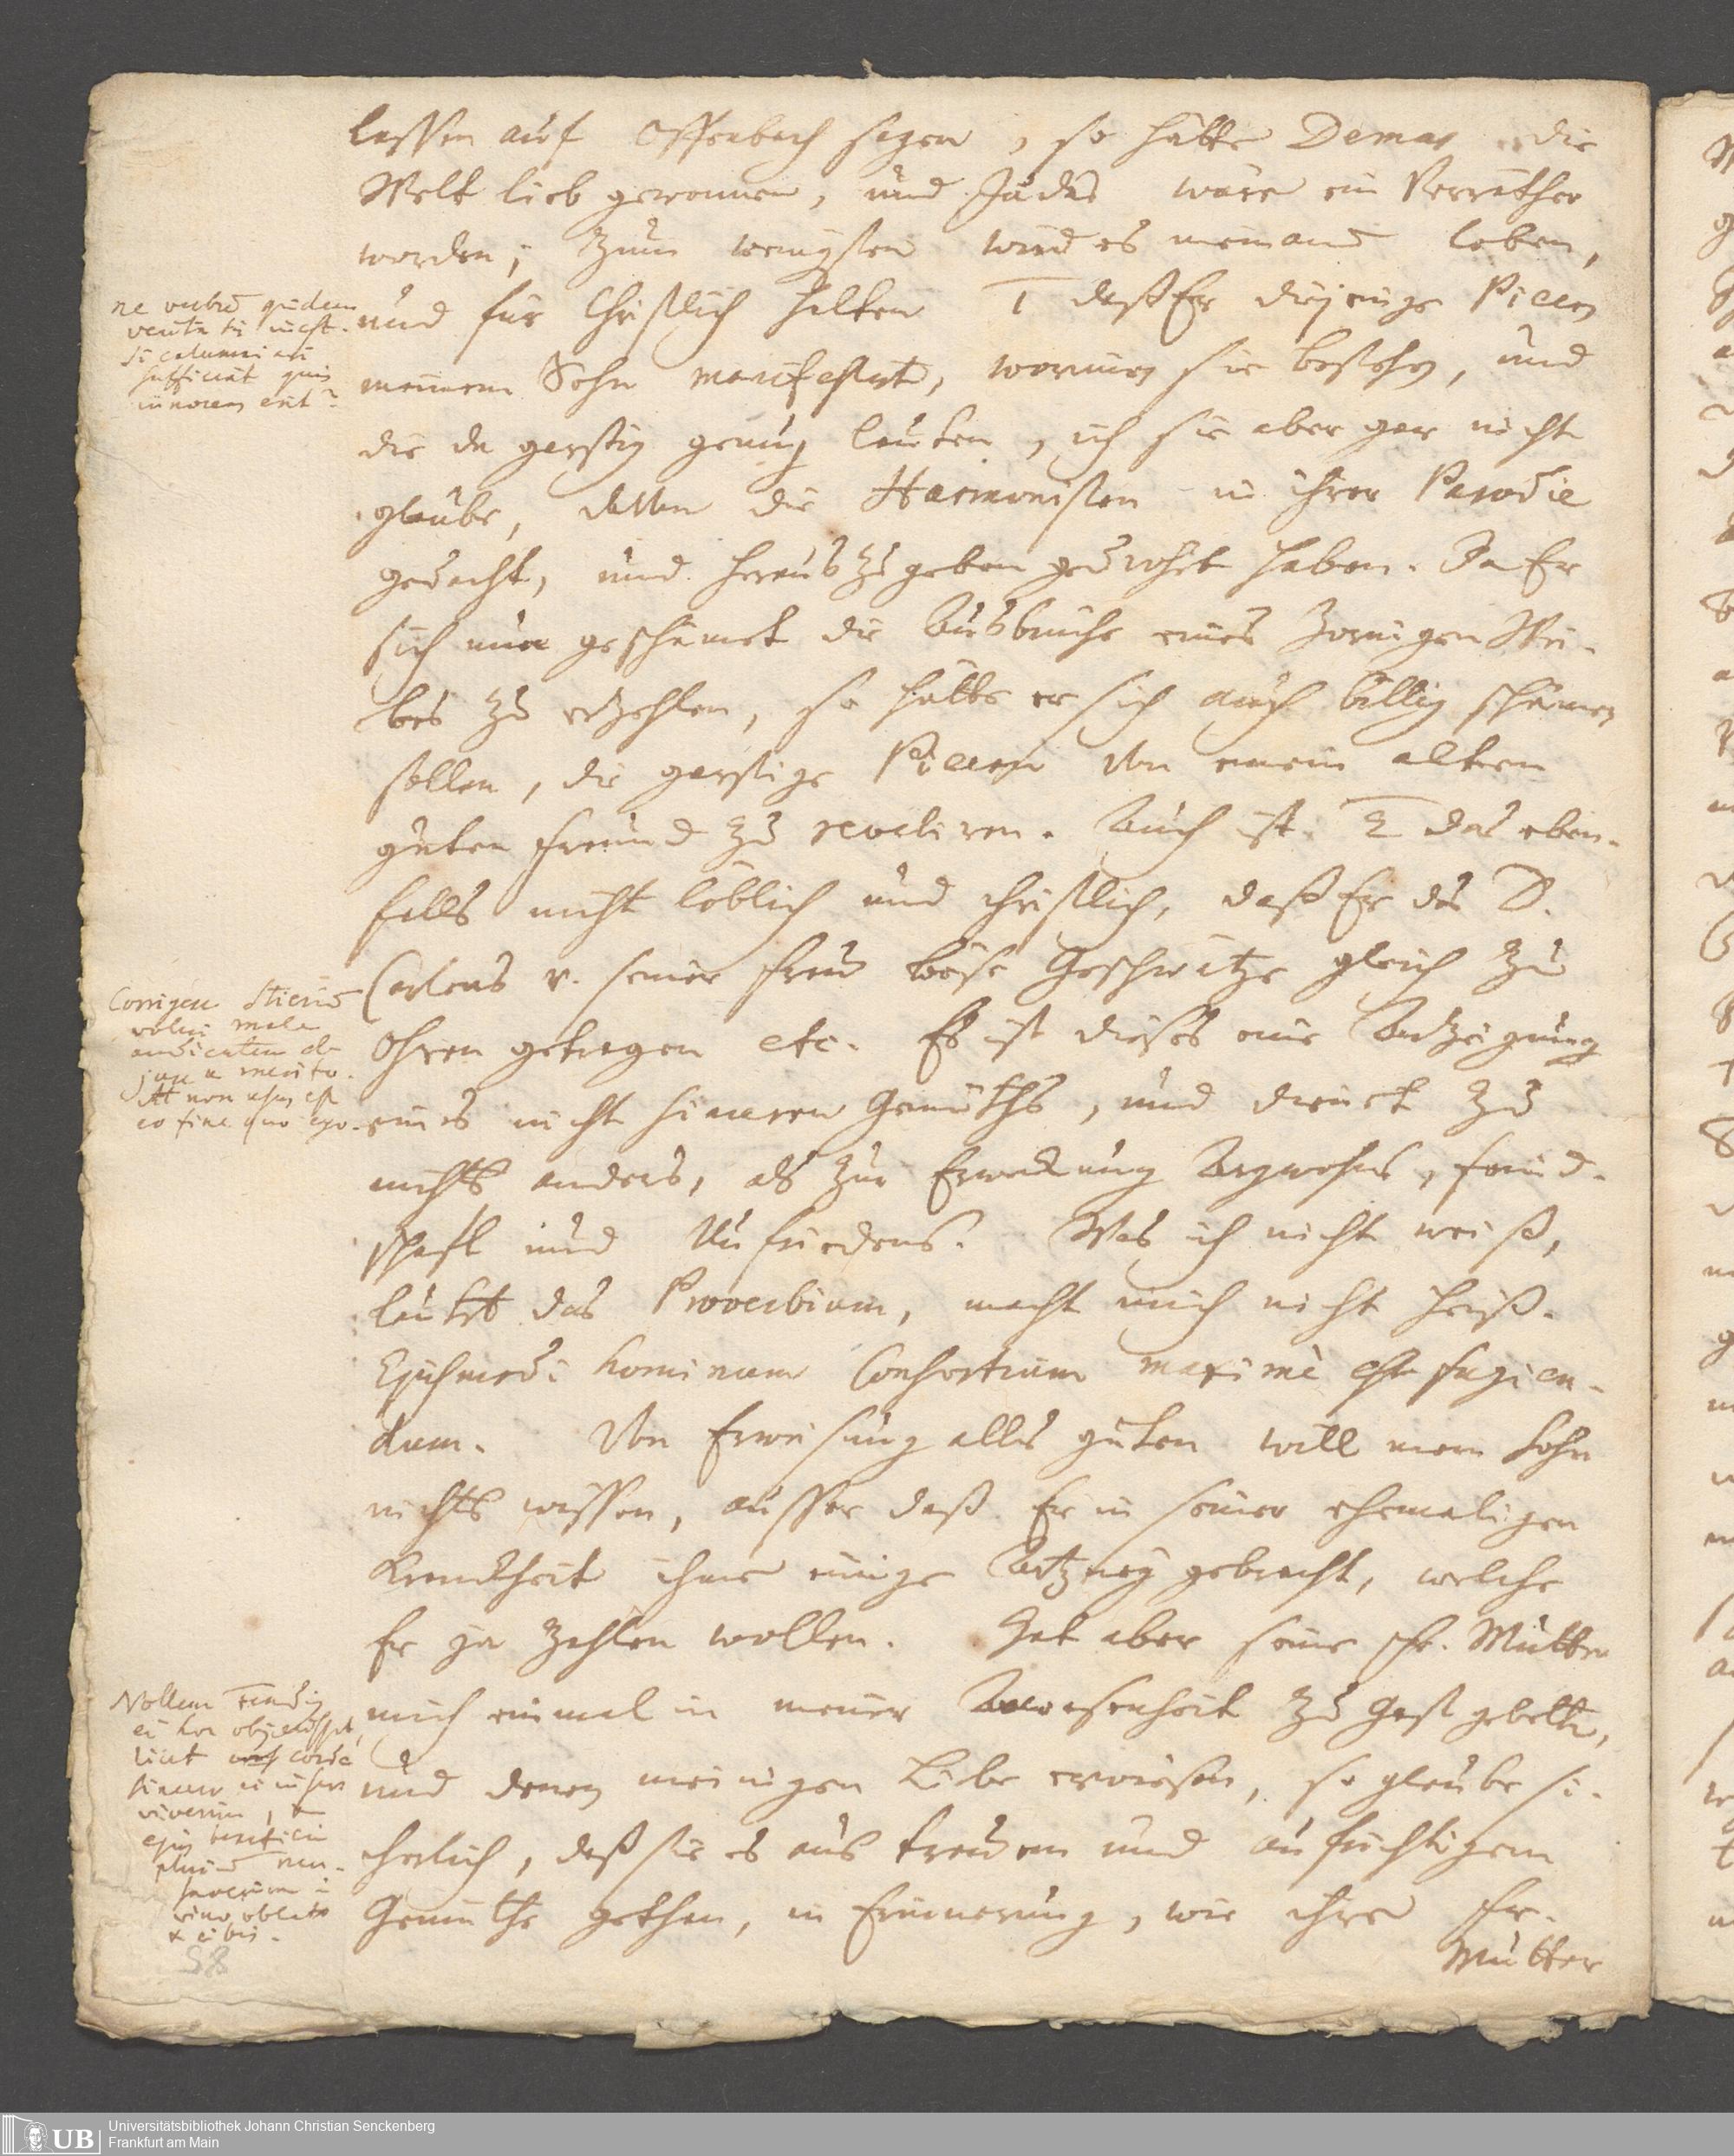 lassen auf Offenbach sagen, so hätte Demas die
Welt lieb gewonnen, und Judas wäre ein Verräther
worden; zum wenigsten wird es niemand loben,
und für Christlich halten 1 daß Er diejenige Pillen
meinem Sohn manifestirt, worinnen sie bestehen, und
die da garstig genug lauten, ich sie aber gar nicht
glaube, deren die Harmonisten in ihrer Parodie
gedacht, und heraus zu geben gedrohet haben. Da Er
sich nun geschämet die Ausbrüche eines zornigen Wei-
bes zu erzehlen, so hätte er sich auch billig schämen
sollen, die garstige Pillen von einem alten
guten Freund zu reveliren. Auch ist 2 das eben-
falls nicht löblich und christlich, daß Er des D.
Carlens v. seiner Frau böse Geschwätze gleich zu
Ohren getragen etc. Es ist dieses eine Anzeigung
eines nicht sinceren Gemüths, und dienet zu
nichts anders, als zur Erweckung Argwohns, Feind-
schaft und Unfriedens. Was ich nicht weiß,
lautet das Proverbium, macht mich nicht heiß.
Ejusmodi hominum Consortium maximè est fugien-
dum. Von Erweisung alles guten will mein Sohn
nichts wissen, ausser daß Er in seiner ehemaligen
Kranckheit ihme einige Artzney gebracht, welche
Er ja zahlen wollen. Hat aber seine Fr. Mutter
mich einmal in meiner Anwesenheit zu Gast gebetten,
und denen meinigen Liebe erwiesen, so glaube si-
cherlich, daß sie es aus treuem und aufrichtigem
Gemüthe gethan, in Erinnerung, wie ihre Fr.
Mutter
ne verbum quidem
veritatis inest.
Si calumniari
sufficiat quis
innocens erit?
Corrigere
volui male
audientem
jure merito.
At non usus est
eo fine quo ego.
Nollem
ei hoc objecisset,
licet corde
sincero
viverim, &
ejus beneficia
vino oblato
& cibis.
58
UB
Universitätsbibliothek Johann Christian Senckenberg
Frankfurt am Main